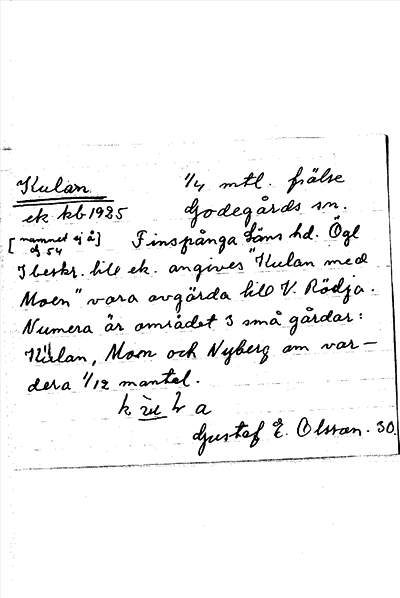 Kulan 1/4 mtl. frälse
ek kb 1925 Godegårds sn.
[namnet ej å] Finspånga Läns hd. Ögl
dj 54
I beskr. till ek. angives "Kulan med
Moen" vara avgärda till V. Rödja.
Numera är området 3 små gårdar:
Kulan, Moen och Nyberg om var-
dera 1/12 mantal.
Gustaf E. Olsson. 30.